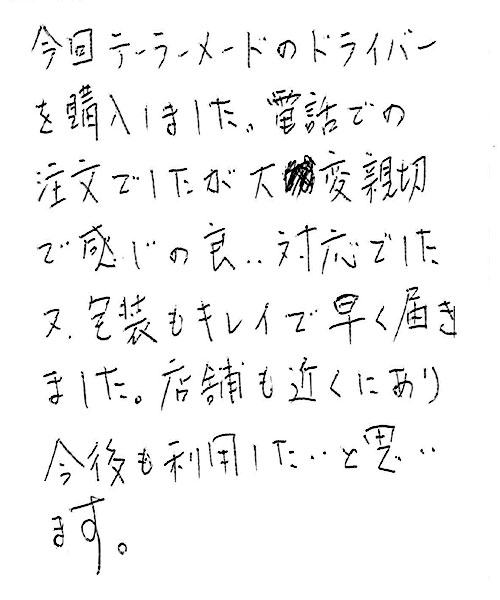 今回テーラーメードのドライバー
を購入しました。電話での
注文でしたが大変親切
で感じの良い対応でした
又、包装もキレイで早く届き
ました。店舗も近くにあり
今後も利用したいと思い
ます。